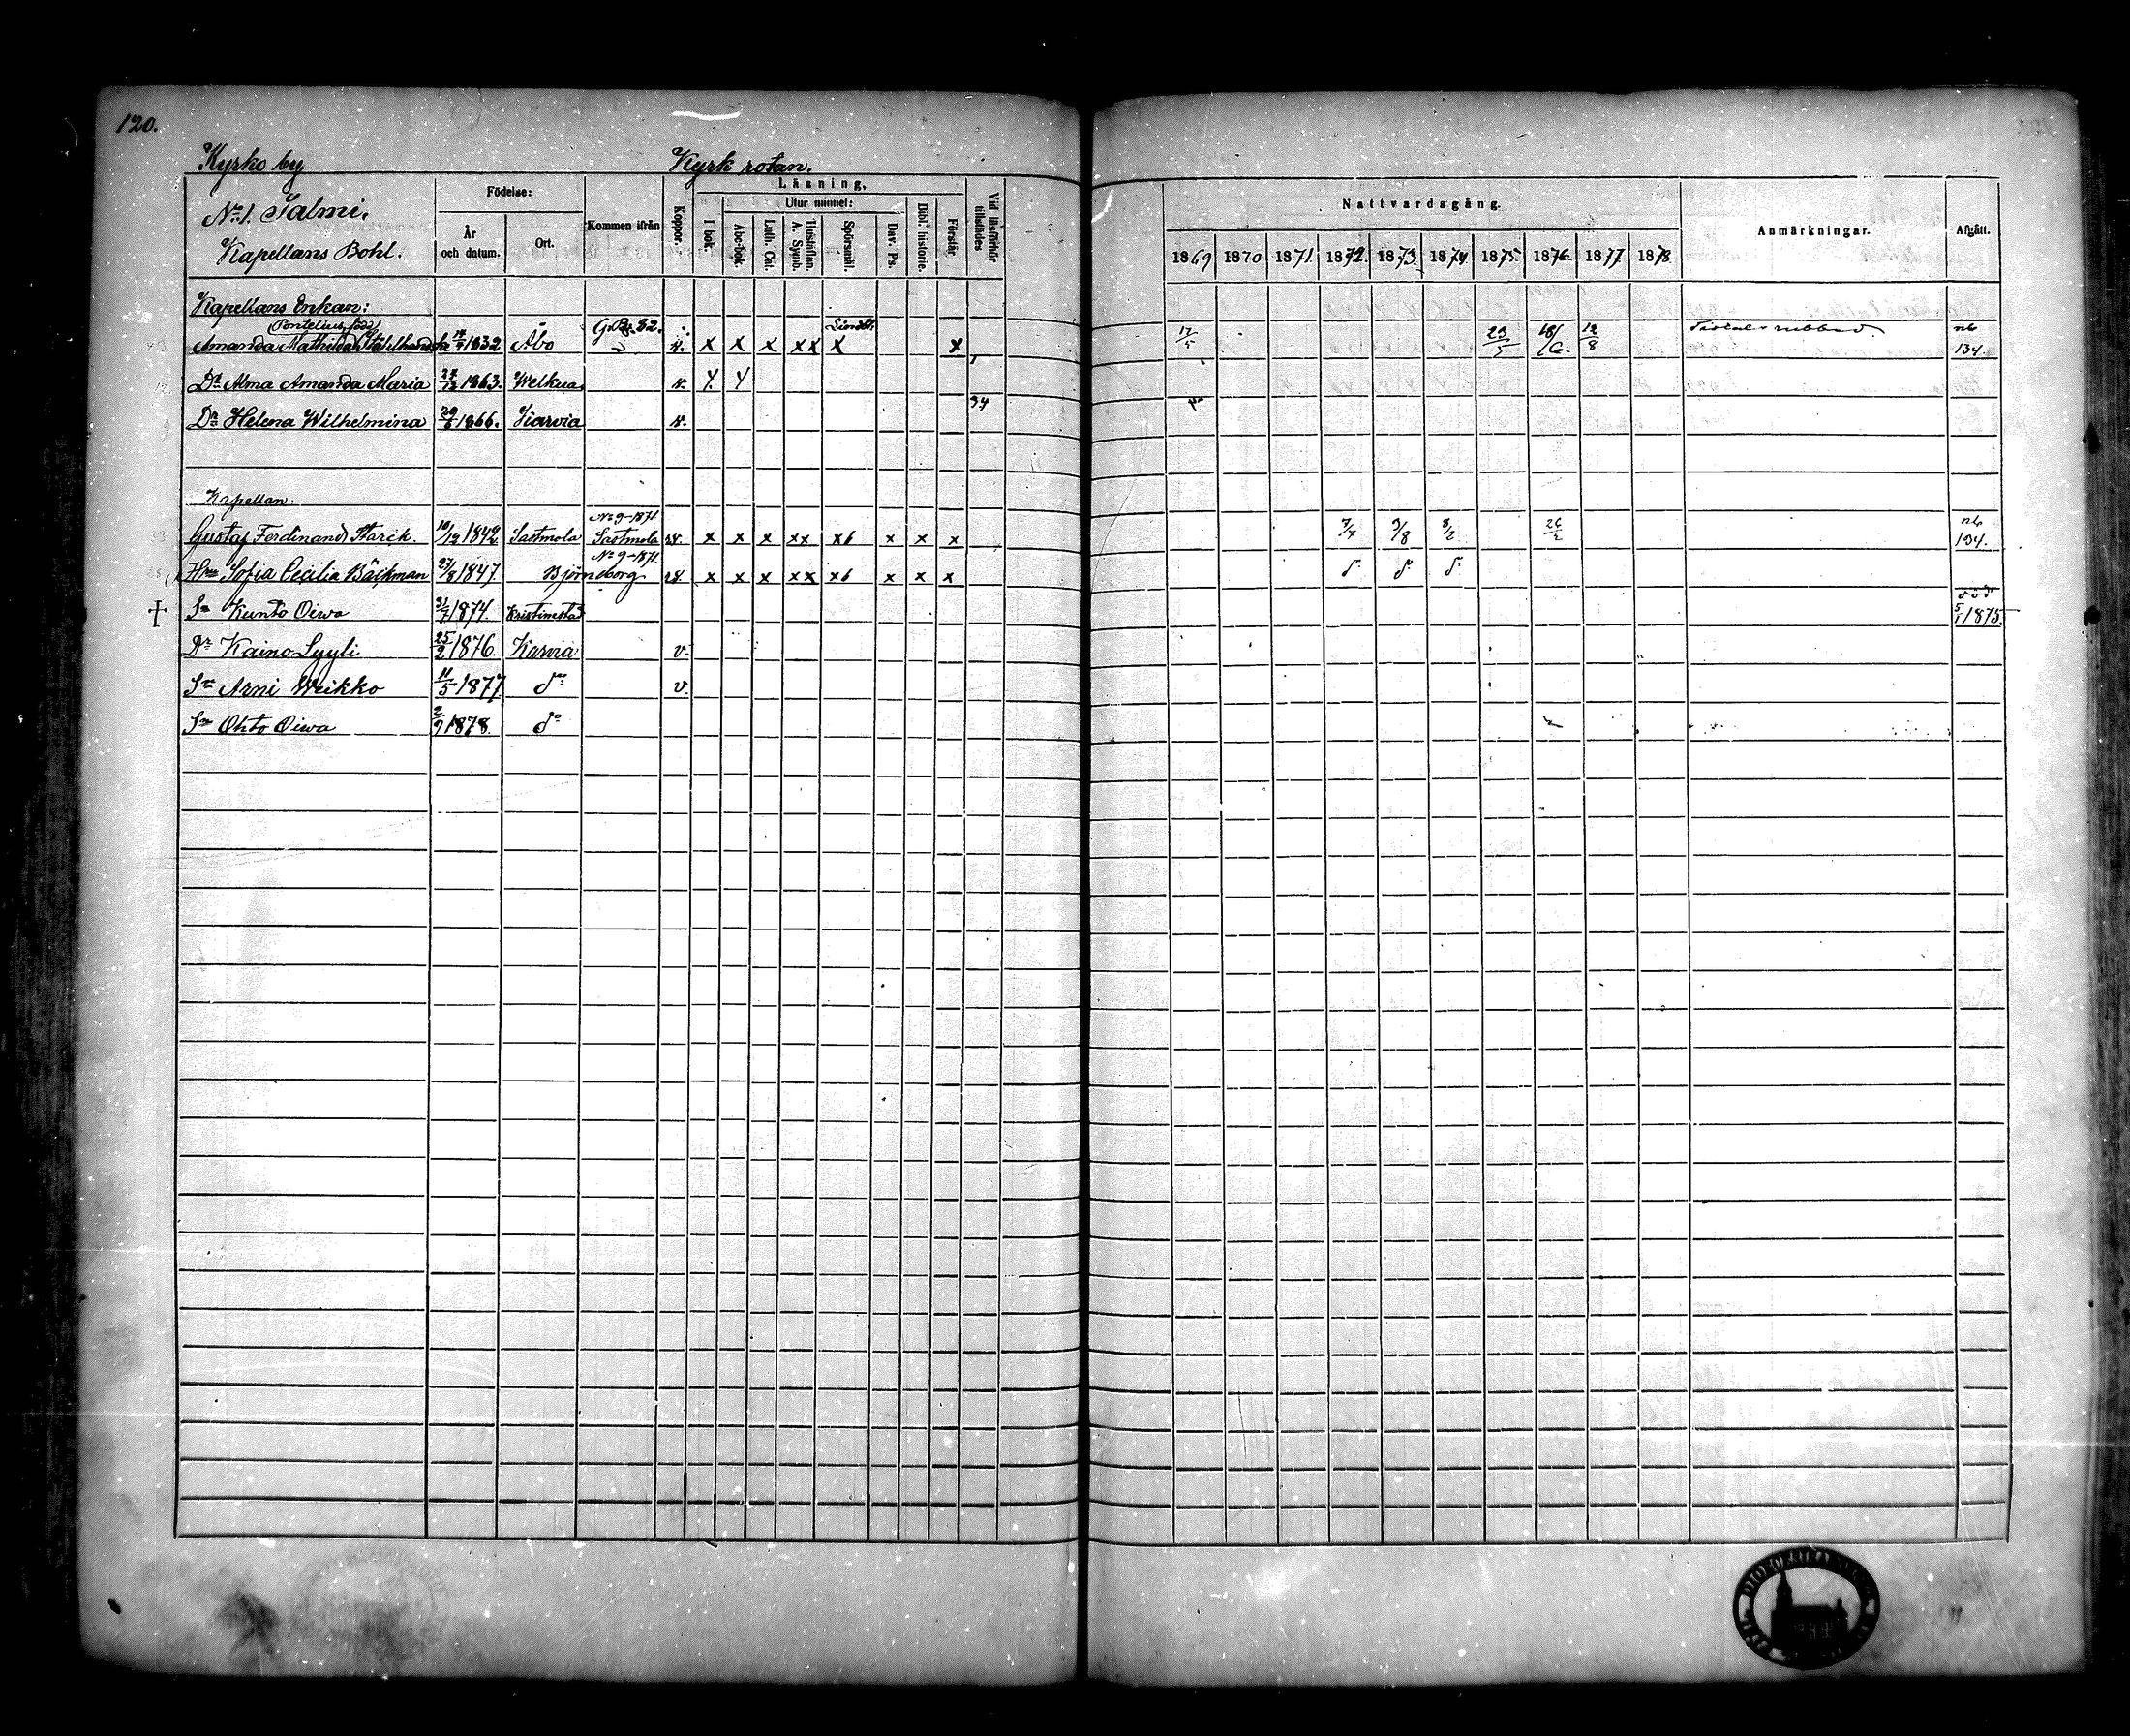 120.
Kyrko by Kyrk rotan.
No 1. Salmi.
Kapellans Bohl.
Födelse:
År och datum. Ort.
Kommen ifrån
Koppor.
Läsning,
I bok.
Utur minnet:
Abc-bok. Luth. Cat. Hustaflan. A. Symb. Spörsmål. Dav. Ps.
Bibl. historie.
Förstår
Vid läsförhör tillstädes
Nattvardsgång.
1869 1870 1871. 1872. 1873. 1874. 1875 1876. 1877 1878
Anmärkningar.
Afgått.
Kapellans Enkan:
(Pontelius, född
Amanda Mathilda 14/7 1832 Åbo G. B. 82. v. x x x xx x x 17/5 23/5 18/6. 12/8 134.
Dr Alma Amanda Maria 1863. Welkua v.
Dr Helena Wilhelmina 29/6 1866. Karvia v. 34
Kapellan:
Gustaf Ferdinand Starck. 10/12 1842 Sastmola No 9-1871 Sastmola x x x xx x6 x x x 7/7 3/8 8/2 26/2 134.
Hru Sofia Cecilia Bäckman 27/8 1847. Björneborg No 9-1871. x x x xx x6 x x x d:o d:o d:o
† Sn Kunto Oiwa 31/7 1874. Kristinestad död 5/1 1875.
Dr Kaino Lyyli 25/2 1876. Karvia v.
Sn Arni Weikko 11/5 1877 do v.
Sn Ohto Oiwa 2/9 1878. do